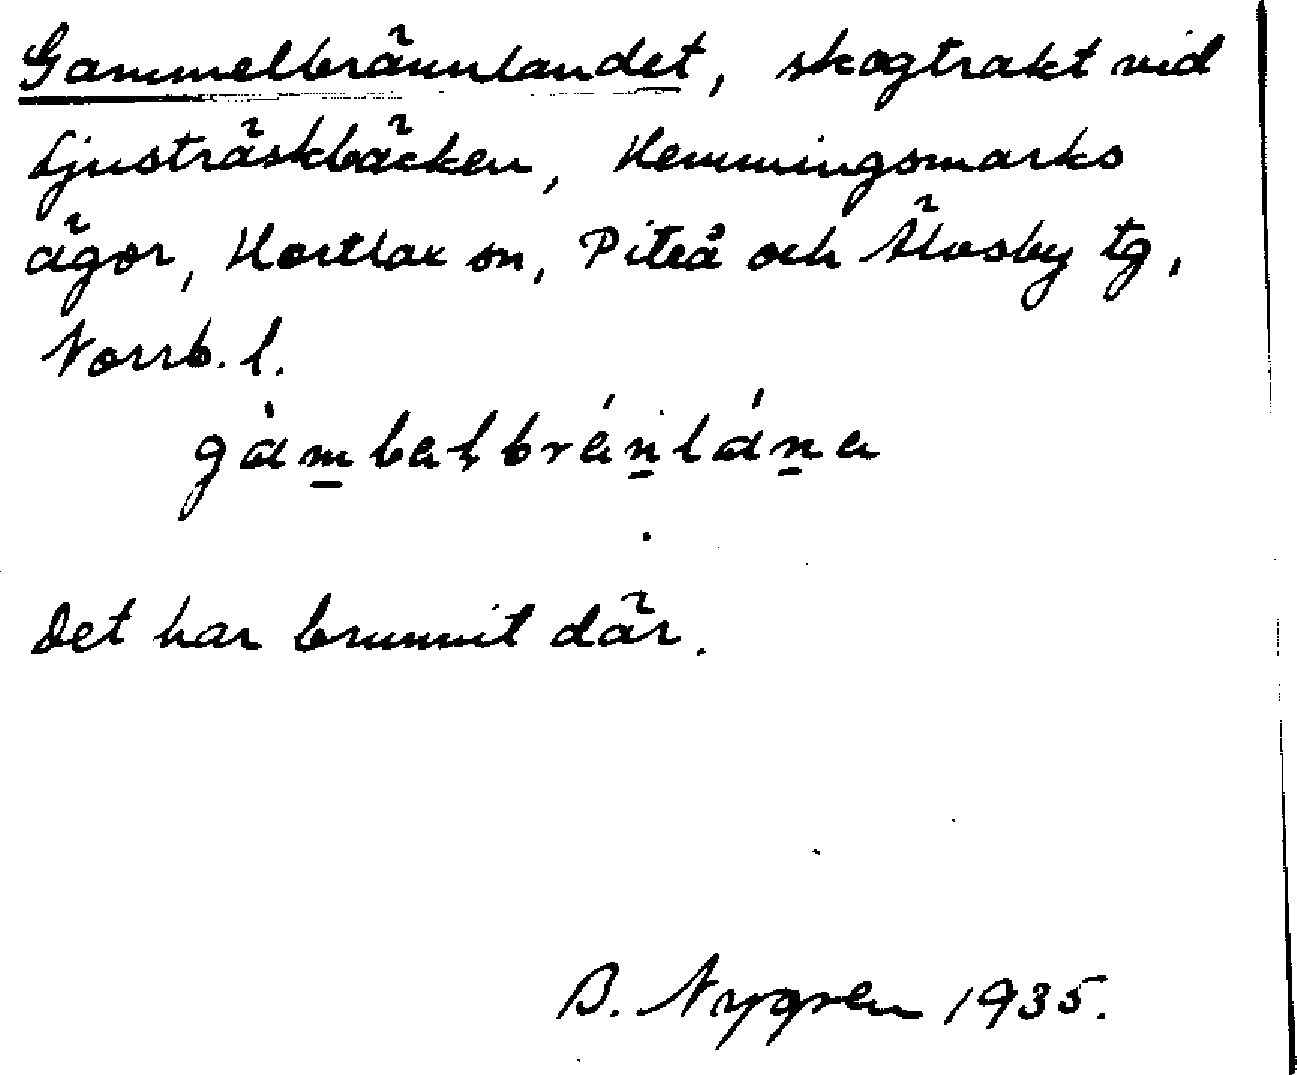 Gammelbrännlandet, skogtrakt vid
Ljusträskbäcken, Hemmingsmarks
ägor, Hortlax sn, Piteå och Älvsby tg,
Norrb. l.
gàmbalbránlána
Det har brunnit där.
B. Nygren 1935.